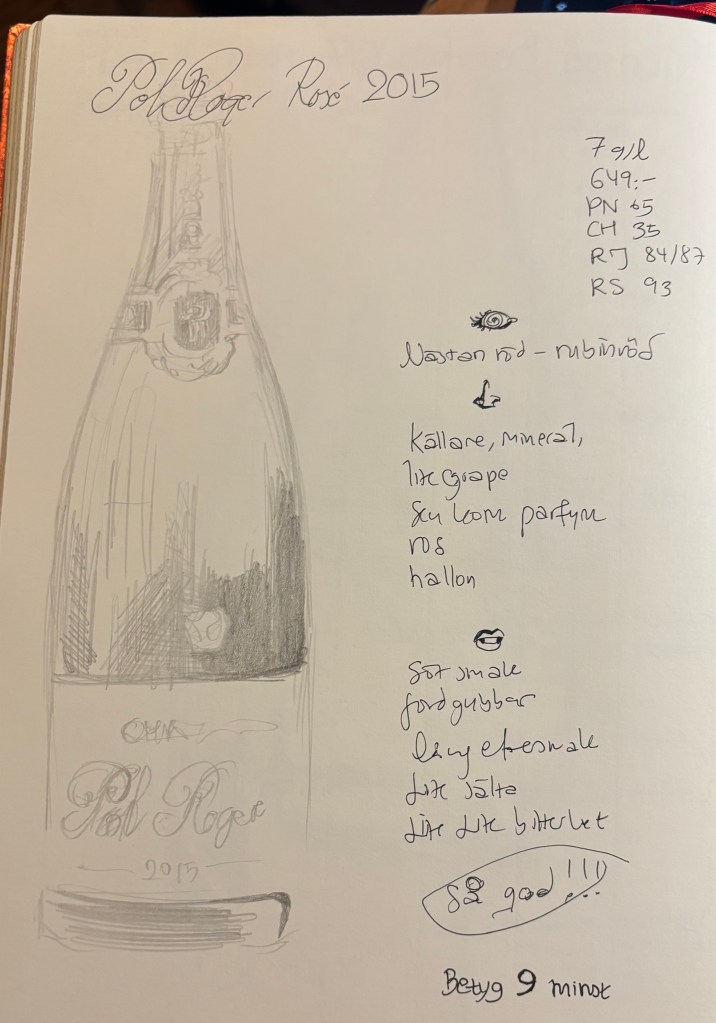 Pol Roger Rosé 2015
7 g/l
649:-
PN 65
CH 35
RJ 84/87
RS 93
Nästan röd - rubinröd
källare, mineral,
lite grape
Sen kom parfym
ros
hallon
Söt smak
jordgubbar
lång eftersmak
Lite sälta
Lite Lite bitterhet
Så god!!!
Betyg 9 minst
Pol Roger
2015